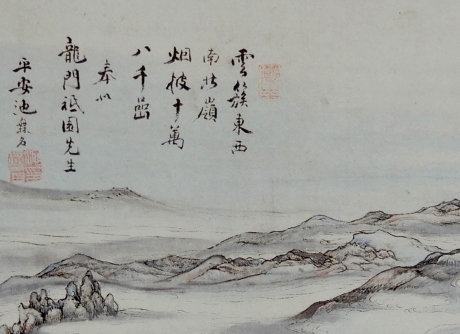 雲簇東西
南北嶺
烟披十萬
八千嵒
奉以
龍門祗園先生
平安池無名